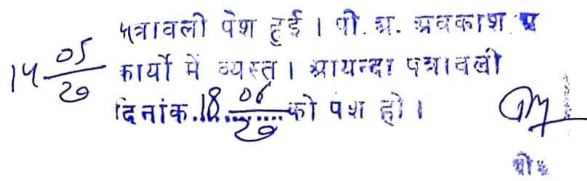 पत्रावली पेश हुई । पी. अ. अवकाश
14 05/20 कार्यो में व्यस्त । आयन्दा पत्रावली
दिनांक 18 06/20 को पेश हो ।